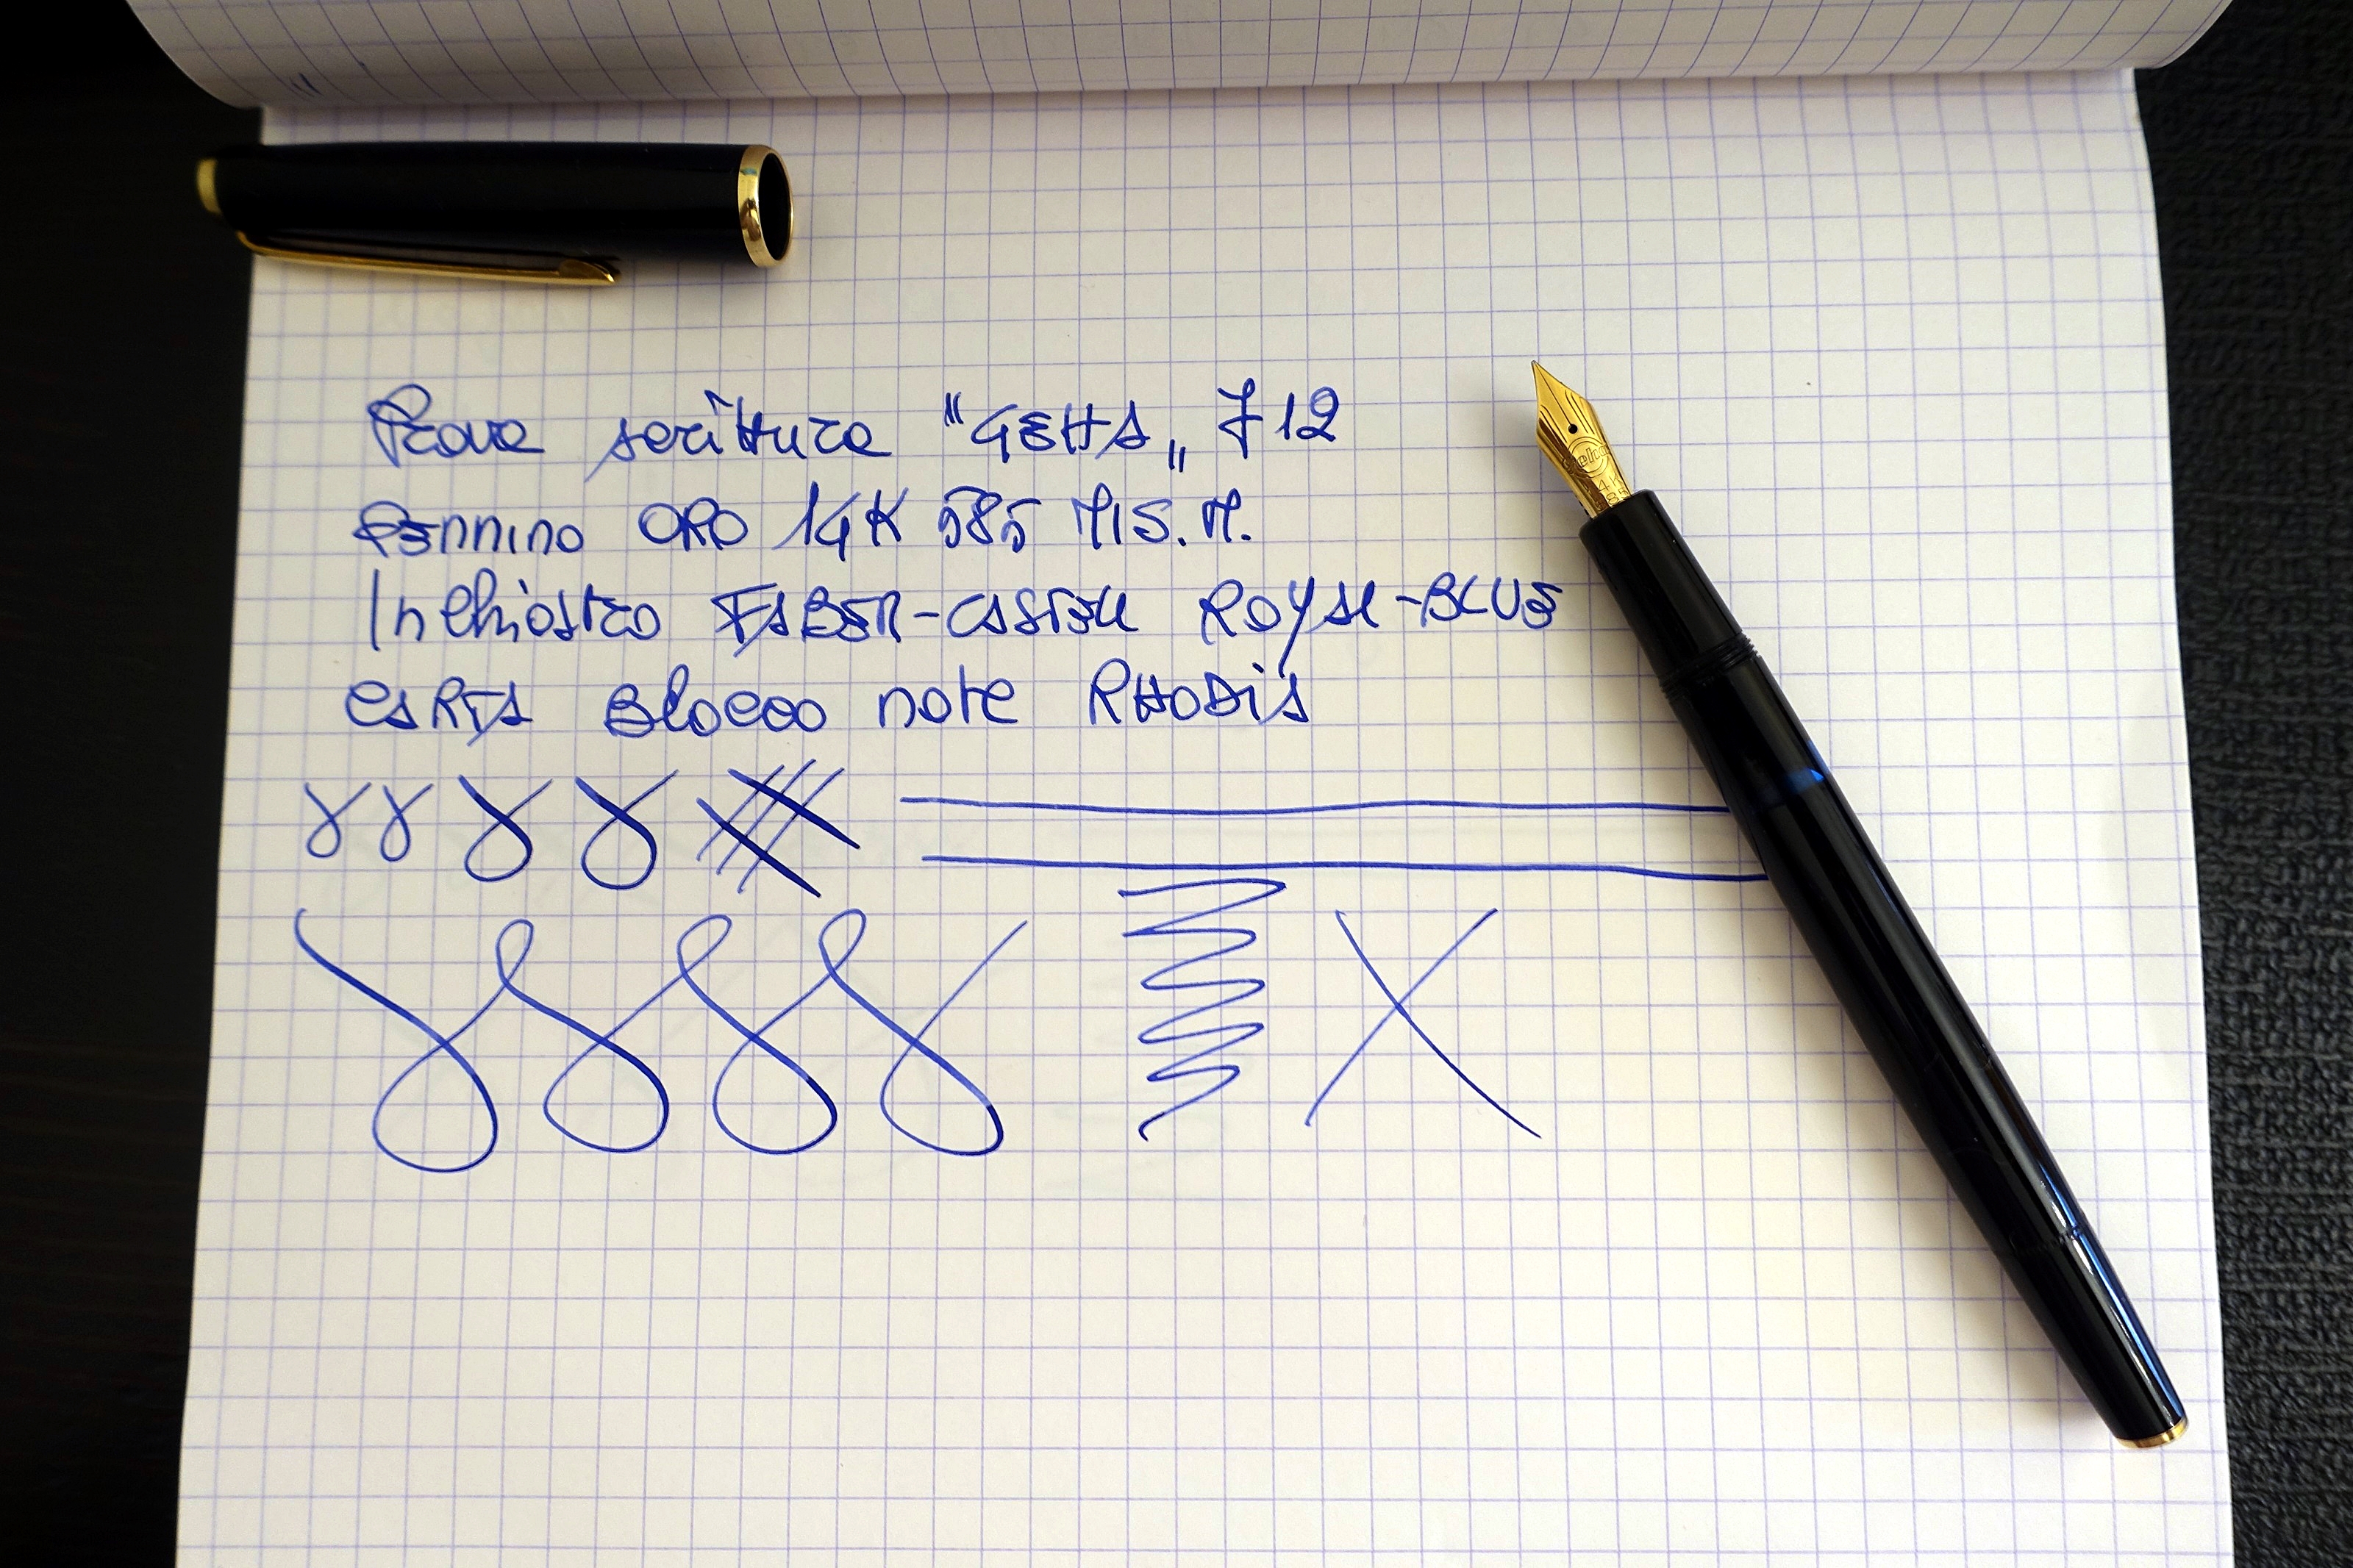 Prova scrittura "GEHA" 712
PENNINO ORO 14K 585 MIS. M.
Inchiostro FABER-CASTELL ROYAL-BLUE
CARTA Blocco note RHODIA
14K
585